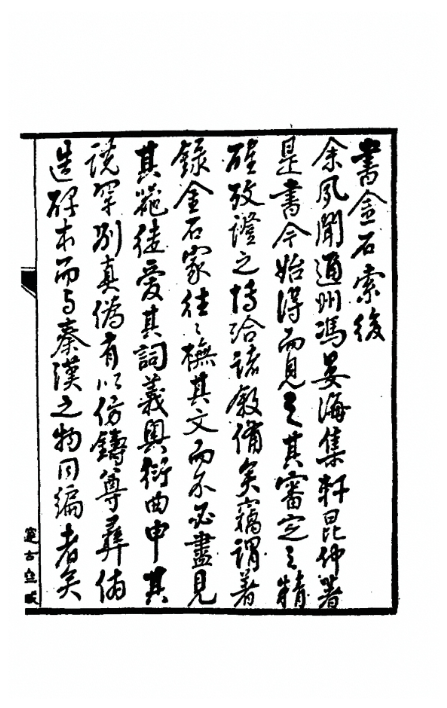 書金石索後
余夙聞通州馮晏海集軒昆仲著
是書今始得而見之其審定之精
確攷證之博洽諸敘備矣竊謂著
錄金石家往〻橅其文而不必盡見
其範徒愛其詞義輿衍曲申其
說罕別真偽有以仿鑄尊彝偽
造碑本而与秦漢之物同編者矣
遂古亝